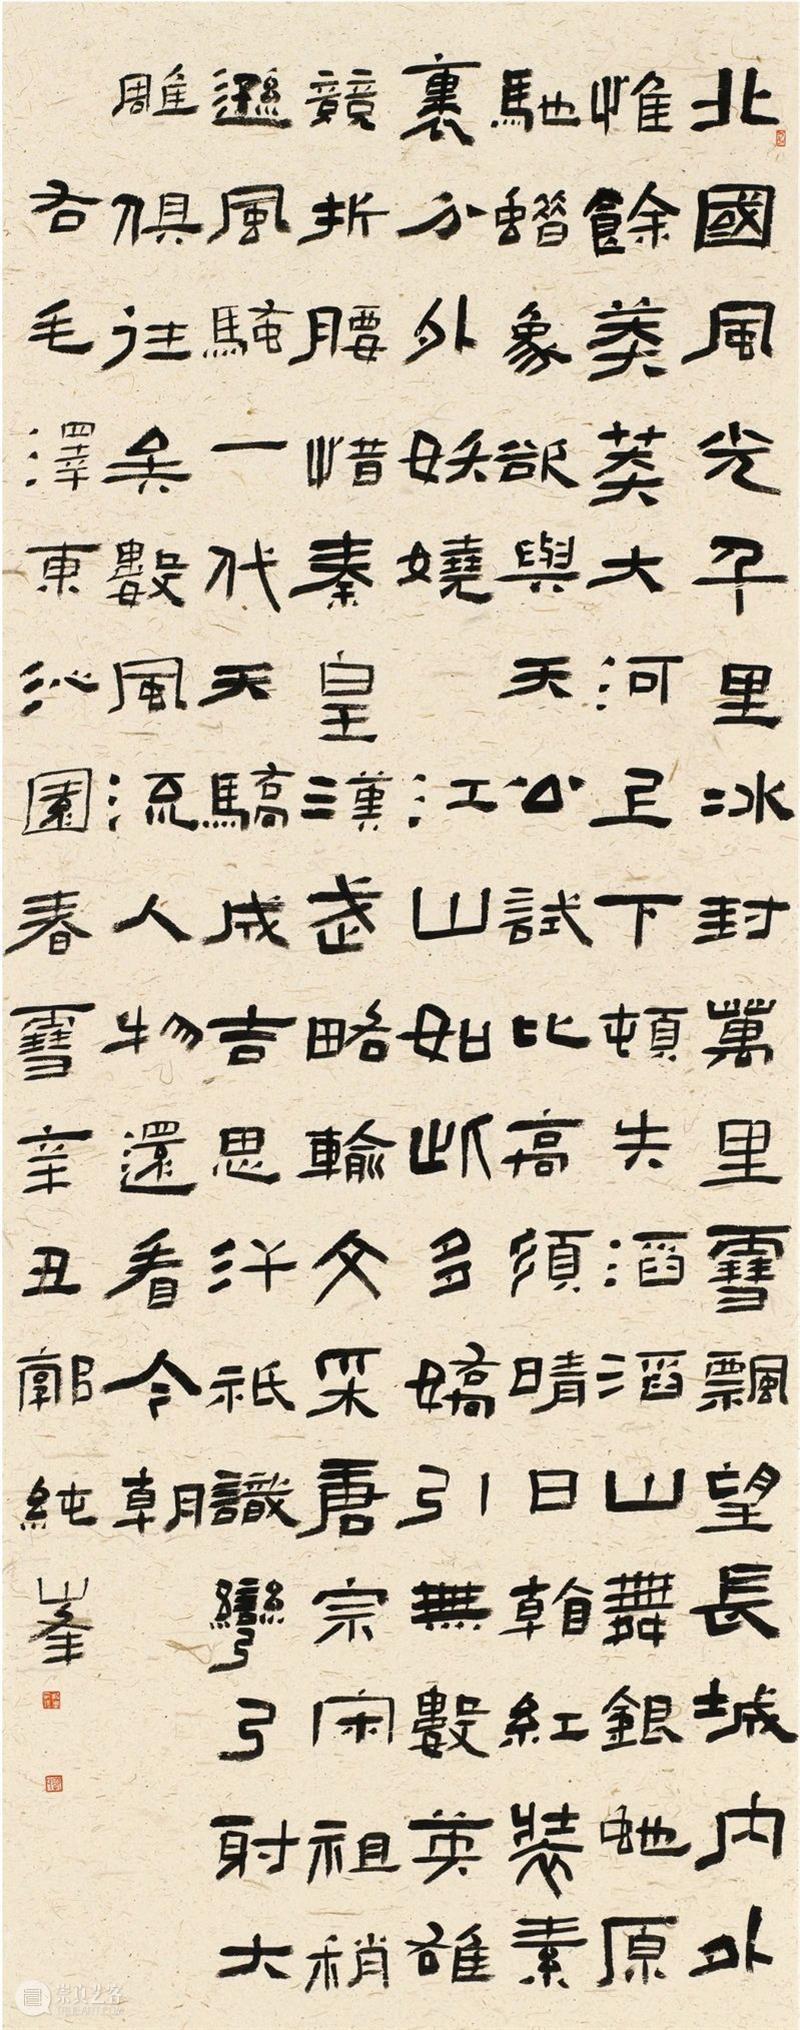 北國風光千里冰封萬里雪飄望長城内外
惟餘莽莽大河上下頓失滔滔山舞銀蛇原
馳蜡象欲與天公試比高須晴日看紅裝素
裹分外妖嬈 江山如此多嬌引無數英雄
競折腰惜秦皇漢武略輸文采唐宗宋祖稍
遜風騷一代天驕成吉思汗祇識彎弓射大
雕俱往矣數風流人物還看今朝
右毛澤東沁園春雪辛丑郭純峯
崇真艺客